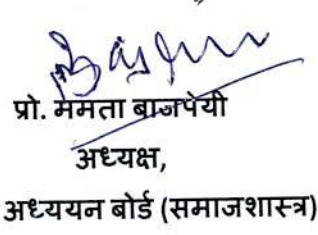 प्रो. ममता बाजपेयी
अध्यक्ष,
अध्ययन बोर्ड (समाजशास्त्र)